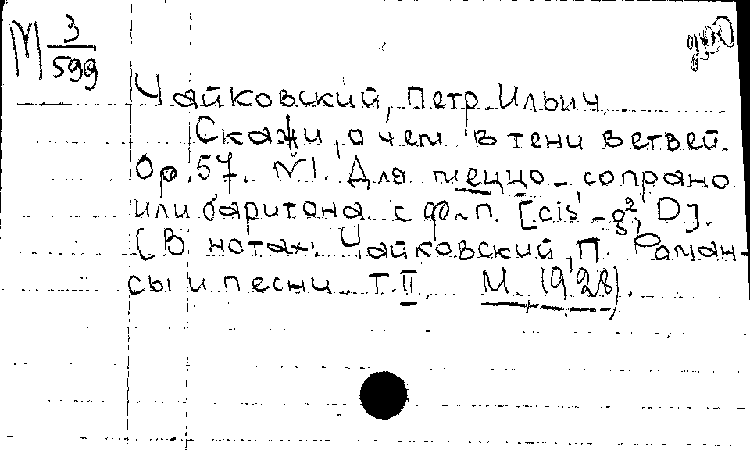 М 3/599
Чайковский, Петр Ильич
Скажи, о чем в тени ветвей.
Op. 57. N1. Для меццо-сопрано
или баритона с ф-п. [cis¹-g², D].
(В нотах: Чайковский, П. Роман-
сы и песни. Т. II. М. (1928).